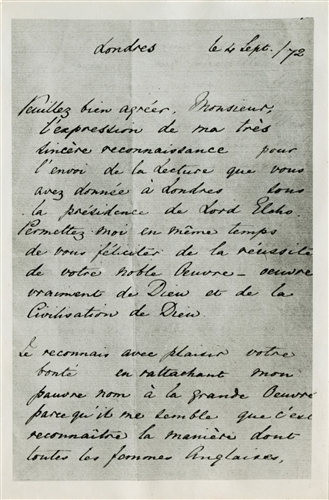 Londres le 4 Sept. /72
Veuillez bien agréer, Monsieur,
l'expression de ma très
sincère reconnaissance pour
l'envoi de la Lecture que vous
avez donnée à Londres sous
la présidence de Lord Elcho.
Permettez moi en même temps
de vous féliciter de la réussite
de votre noble Oeuvre - oeuvre
vraiment de Dieu et de la
Civilisation de Dieu
Je reconnais avec plaisir votre
bonté en rattachant mon
pauvre nom à la grande Oeuvre
parce qu'il me semble que c'est
reconnaître la manière dont
toutes les femmes Anglaises,